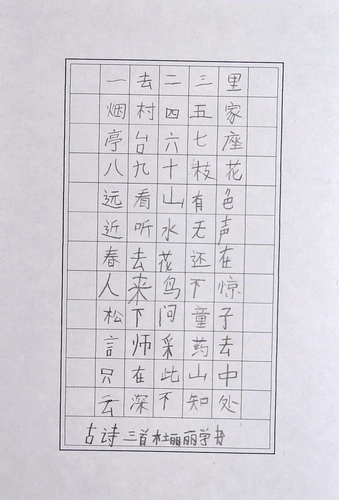 一去二三里
烟村四五家
亭台六七座
八九十枝花
远看山有色
近听水无声
春去花还在
人来鸟不惊
松下问童子
言师采药去
只在此山中
云深不知处
古诗三首杜丽丽学书